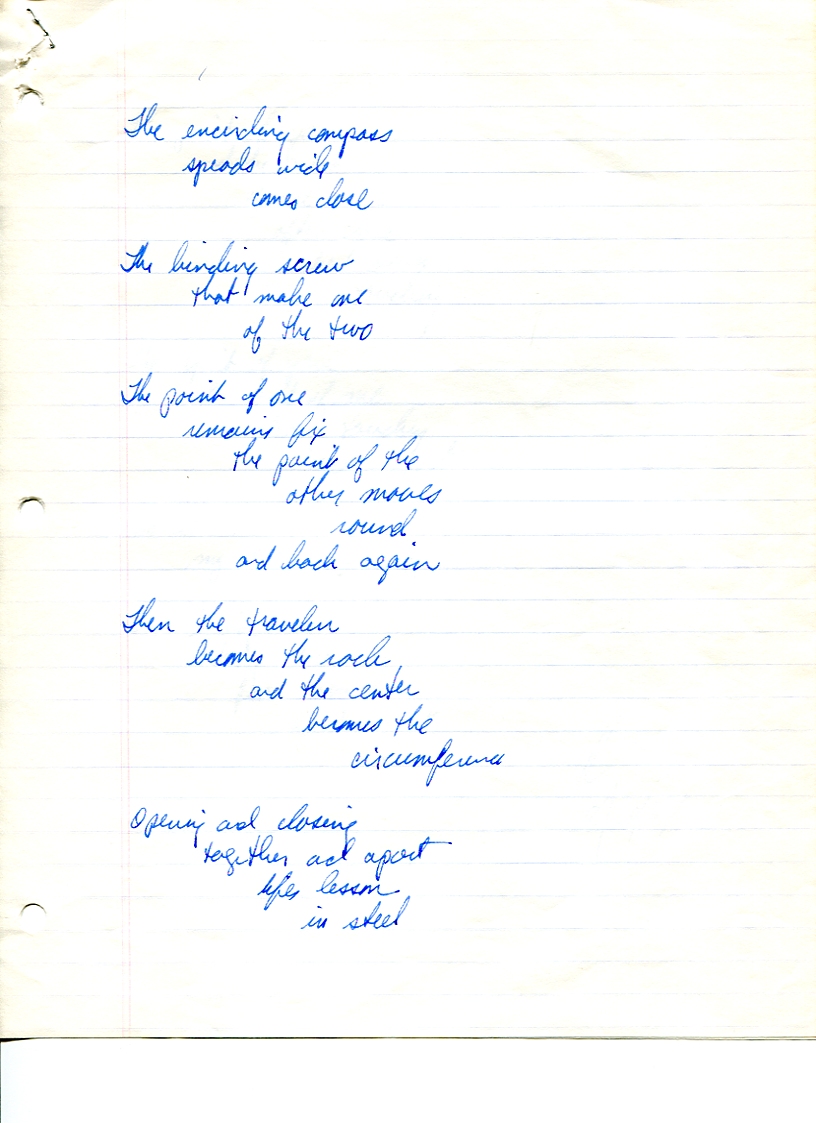 The encircling compass
spreads wide
comes close
The binding screw
that make one
of the two
The point of one
remains fix
the point of the
other moves
round
and back again
Then the traveler
becomes the rock
and the center
becomes the
circumference
Opening and closing
together and apart
lifes lesson
in steel